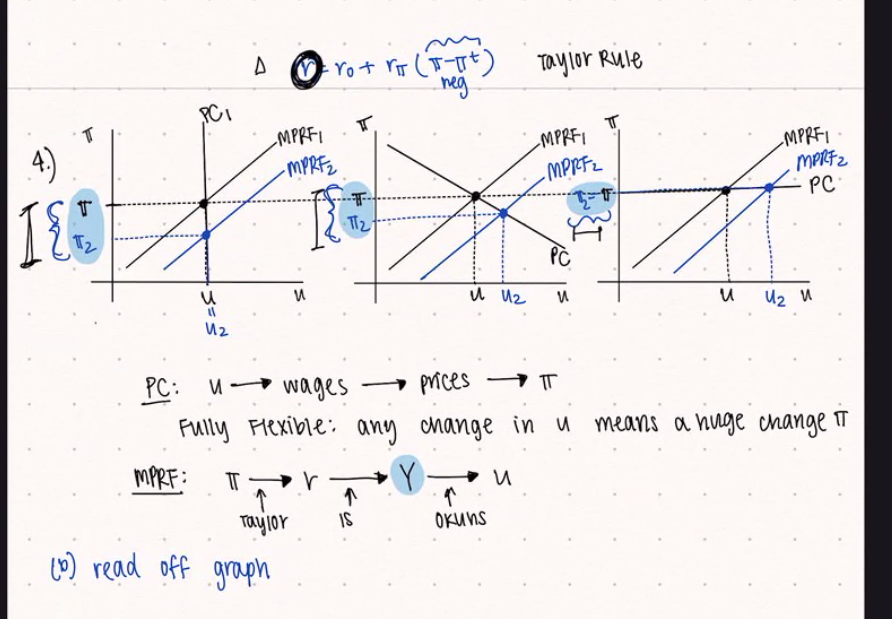 Δ r = r₀ + rπ (π-πᵗ) Taylor Rule
neg
4.)
π PC₁ MPRF₁ MPRF₂
π
π₂
u u
=
u₂
π MPRF₁ MPRF₂
π
π₂
PC
u u₂ u
π MPRF₁ MPRF₂
π₂=π
PC
u u₂ u
PC: u → wages → prices → π
Fully Flexible: any change in u means a huge change π
MPRF: π → r → Y → u
↑ ↑ ↑
Taylor IS OKUNS
(b) read off graph